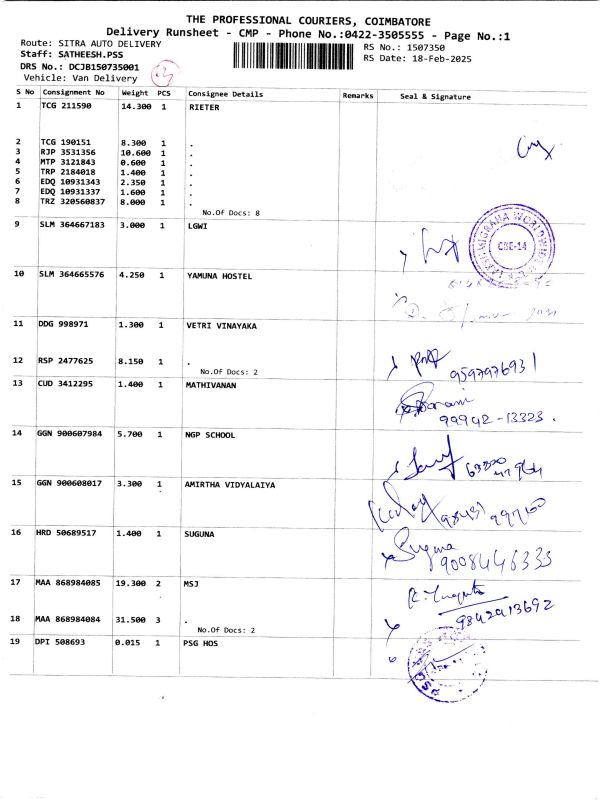 THE PROFESSIONAL COURIERS, COIMBATORE
Delivery Runsheet - CMP - Phone No.:0422-3505555 - Page No.:1
Route: SITRA AUTO DELIVERY
RS No.: 1507350
Staff: SATHEESH.PSS
RS Date: 18-Feb-2025
DRS No.: DCJB150735001
Vehicle: Van Delivery
S No Consignment No Weight PCS Consignee Details Remarks Seal & Signature
1 TCG 211590 14.300 1 RIETER
2 TCG 190151 8.300 1 .
3 RJP 3531356 10.600 1 .
4 MTP 3121843 0.600 1 .
5 TRP 2184018 1.400 1 .
6 EDQ 10931343 2.350 1 .
7 EDQ 10931337 1.600 1 .
8 TRZ 320560837 8.000 1 .
No.Of Docs: 8
9 SLM 364667183 3.000 1 LGWI
CBE-14
10 SLM 364665576 4.250 1 YAMUNA HOSTEL
11 DDG 998971 1.300 1 VETRI VINAYAKA
12 RSP 2477625 8.150 1 .
No.Of Docs: 2
9597976931
13 CUD 3412295 1.400 1 MATHIVANAN
99942-13323.
14 GGN 900607984 5.700 1 NGP SCHOOL
15 GGN 900608017 3.300 1 AMIRTHA VIDYALAIYA
16 HRD 50689517 1.400 1 SUGUNA
Suguna
9008446333
17 MAA 868984085 19.300 2 MSJ
18 MAA 868984084 31.500 3 .
9842913692
No.Of Docs: 2
19 DPI 508693 0.015 1 PSG HOS